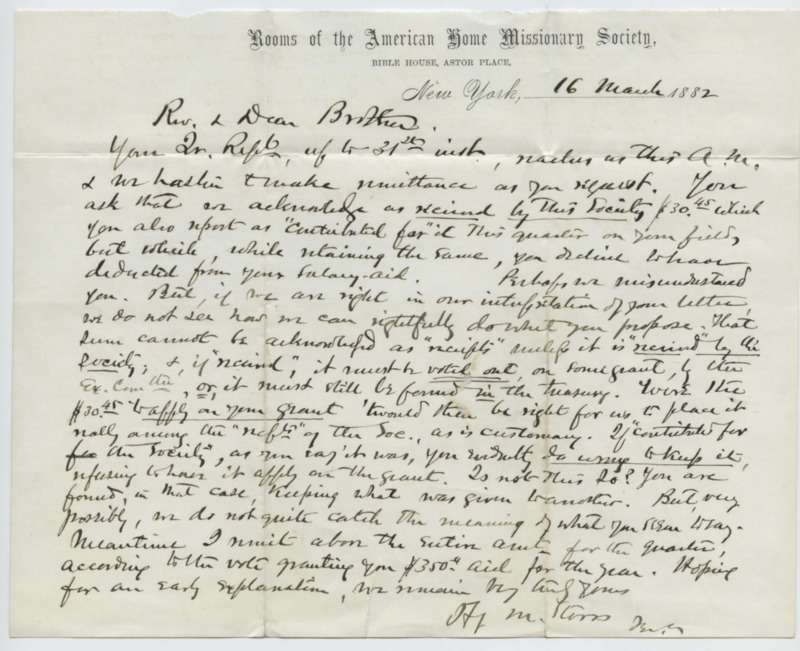 Rooms of the American Home Missionary Society,
BIBLE HOUSE, ASTOR PLACE,
New York, 16 March 1882
Rev. & Dear Brother.
Your Qr. Rept, up to 31st inst, reaches us this A.M.
& we hasten to make remittance as you request. You
ask that we acknowledge as received by this Society $30.45 which
you also report as "contributed for" it this quarter on your field,
but which, while retaining the same, you decline to have
deducted from your salary-aid. Perhaps we misunderstand
you. But, if we are right in our interpretation of your letter,
we do not see how we can rightfully do what you propose. That
sum cannot be acknowledged as "receipts" unless it is "received" by the
Society; &, if "received", it must be voted out, on some grant, by the
Ex. Comttee, or, it must still be found in the treasury. Were the
$30.45 to apply on your grant 'twould then be right for us to place it
really among the "recpts" of the Soc., as is customary. If "contributed for
the Society", as you say it was, you evidently do wrong to keep it,
refusing to have it apply on the grant. Is not this so? You are
found, in that case, keeping what was given to another. But, very
possibly, we do not quite catch the meaning of what you mean to say.
Meantime I remit above the entire amt. for the quarter,
according to the vote granting you $350.00 aid for the year. Hoping
for an early explanation, we remain Very truly yours
Hy M. Storrs